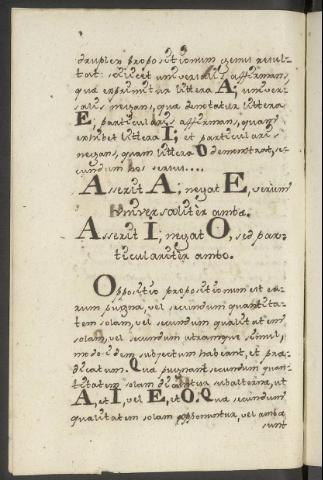 druplex propositionum genus resul-
tat: scilicet universalis affirmans,
quæ exprimitur littera A; univer-
salis negans, quæ denotatur littera
E, particularis affirmans, quam
exhibet littera I; et particularis
negans, quam littera O demonstrat, se-
cundum hos versus....
Asserit A; negat E, verùm
universalitèr ambæ.
Asserit I; negat O, sed par-
ticularitèr ambo.
Oppositio propositionum est ea-
rum pugna, vel secundum quantita-
tem solam, vel secundum qualitatem
solam, vel secundum utramque simul,
modo idem subjectum habeant, et præ-
dicatum. Quæ pugnant secundum quan-
titatem solam dicuntur subalternæ, ut
A, et I, vel E, et O. Quæ secundum
qualitatem solam opponuntur, vel ambæ
sunt